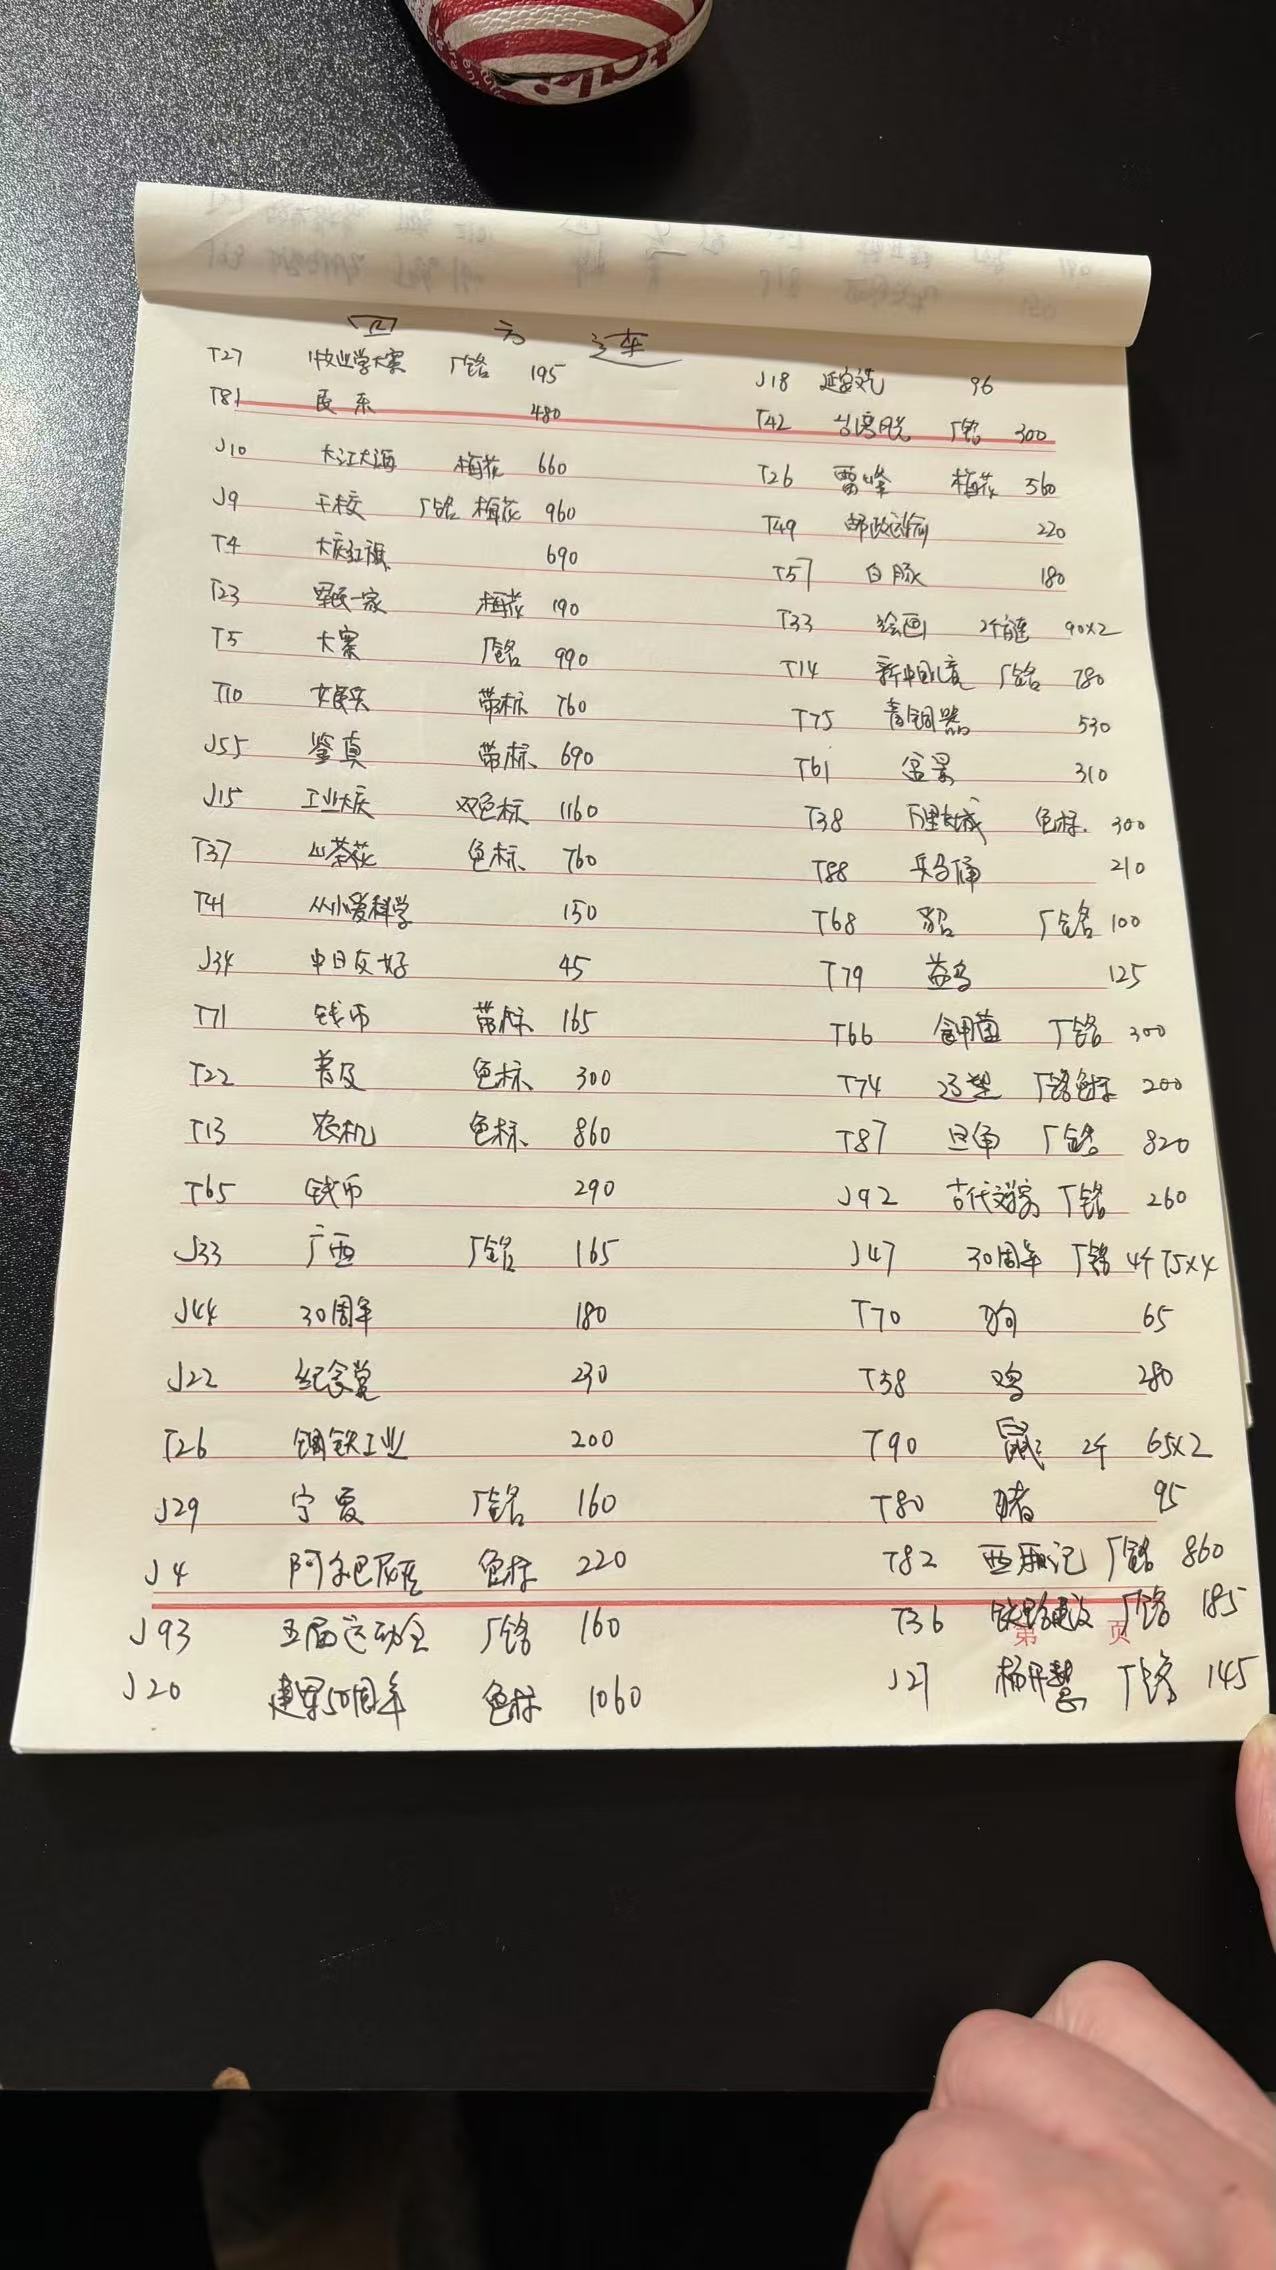 四方连
T27 牧业学大寨 厂铭 195
T81 民乐 480
J10 大江大海 梅花 660
J9 干校 厂铭 梅花 960
T4 大庆红旗 690
T23 军民一家 梅花 190
T5 大寨 厂铭 990
T10 女民兵 带标 760
J55 鉴真 带标 690
J15 工业大庆 双色标 1160
T37 山茶花 色标 760
T41 从小爱科学 150
J34 中日友好 45
T71 钱币 带标 165
T22 普及 色标 300
T13 农机 色标 860
T65 钱币 290
J33 广西 厂铭 165
J44 30周年 180
J22 纪念堂 230
T26 钢铁工业 200
J29 宁夏 厂铭 160
J4 阿尔巴尼亚 色标 220
J93 五届运动会 厂铭 160
J20 建军50周年 色标 1060
J18 延安文艺 96
T42 台湾风光 厂铭 300
T26 雷峰 梅花 560
T49 邮政运输 220
T57 白豚 180
T33 绘画 2个 90x2
T14 新中国儿童 厂铭 780
T75 青铜器 530
T61 盆景 310
T38 万里长城 色标 300
T88 兵马俑 210
T68 貂 厂铭 100
T79 益鸟 125
T66 食用菌 厂铭 300
T74 泥塑 厂铭色标 200
T87 旦角 厂铭 820
J92 古代文学家 厂铭 260
J47 30周年 厂铭 4个 75x4
T70 狗 65
T58 鸡 280
T90 鼠 2个 65x2
T80 猪 95
T82 西厢记 厂铭 860
T36 铁路建设 厂铭 185
第 页
J27 杨开慧 厂铭 145